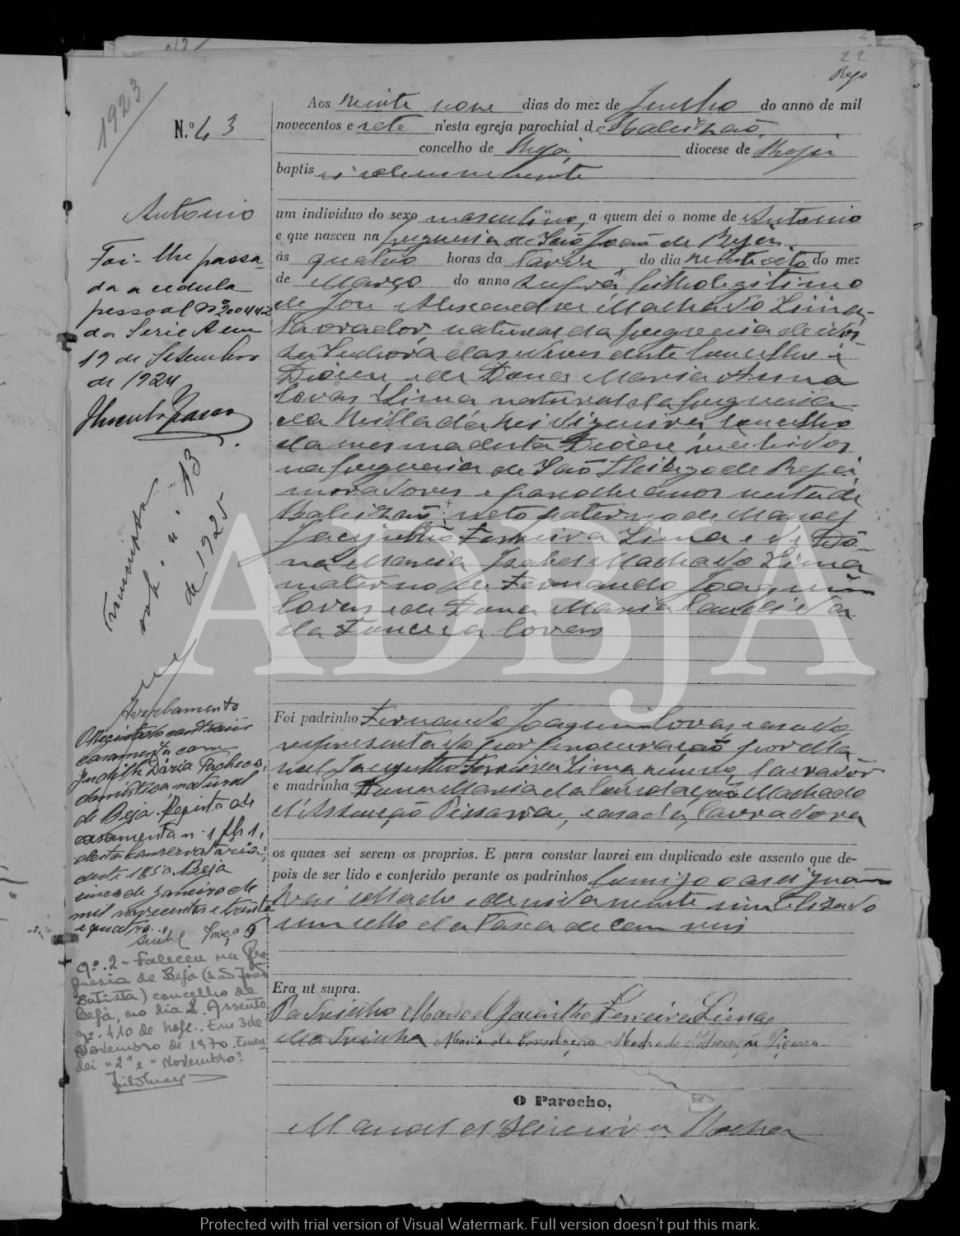 1923
22
Beja
N.º 43
Antonio
Foi-lhe passa-
da a cedula
pessoal Nº 200442
da Serie A em
19 de Setembro
de 1924
Transcripta
sob n.º 13
de 1925
Averbamento
O registado contraiu
casamento com
Judith Dária Pacheco,
doméstica, natural
de Beja. Registo de
casamento n. 1, fls 1,
desta Conservatoria,
deste ano. Beja
cinco de Janeiro de
mil novecentos e trinta
e quatro.
Nº. 2 - Faleceu na fre-
guesia de Beja (São João
Batista) concelho de
Beja, no dia 2. Assento
nº. 410 de hoje. Em 3 de
Novembro de 1970. Emen-
dei "2" e "Novembro".
Aos vinte nove dias do mez de Junho do anno de mil
novecentos e sete n'esta egreja parochial de Baleizão,
concelho de Beja, diocese de Beja
baptisei solemnemente
um individuo do sexo masculino, a quem dei o nome de Antonio
e que nasceu na freguesia de São João de Beja,
ás quatro horas da tarde do dia vinte oito do mez
de Março do anno filho legitimo
de José Alexandre Machado Lima,
lavrador, natural da freguesia de Nos-
sa Senhora das Neves deste concelho e
Diocese e de Dona Maria Anna
Covas Lima natural da freguesia
da Villa da Vidigueira concelho
da mesma desta Diocese, recebidos
na freguesia de São Thiago de Beja
moradores e parochianos nesta de
Baleizão; neto paterno de Manoel
Jacintho Ferreira Lima e de Do-
na Maria Izabel Machado Lima
materno de Fernando Joaquim
Covas e de Dona Maria Candida
da Fonceca Covas
Foi padrinho Fernando Joaquim Covas, casado,
representado por procuração por Ma-
nuel Jacintho Ferreira Lima, lavrador
e madrinha Dona Maria da Consolação Machado
d'Assunção Pissarra, casada, lavradora
os quaes sei serem os proprios. E para constar lavrei em duplicado este assento que de-
pois de ser lido e conferido perante os padrinhos comigo o assignam
devidamente inutilizado
um sello da Taxa de cem reis
Era ut supra.
Padrinho Manoel Jacintho Ferreira Lima
Madrinha Maria da Consolação Machado Pissarra
O Parocho,
Manoel d'Oliveira Rocha
ADBJA
Protected with trial version of Visual Watermark. Full version doesn't put this mark.